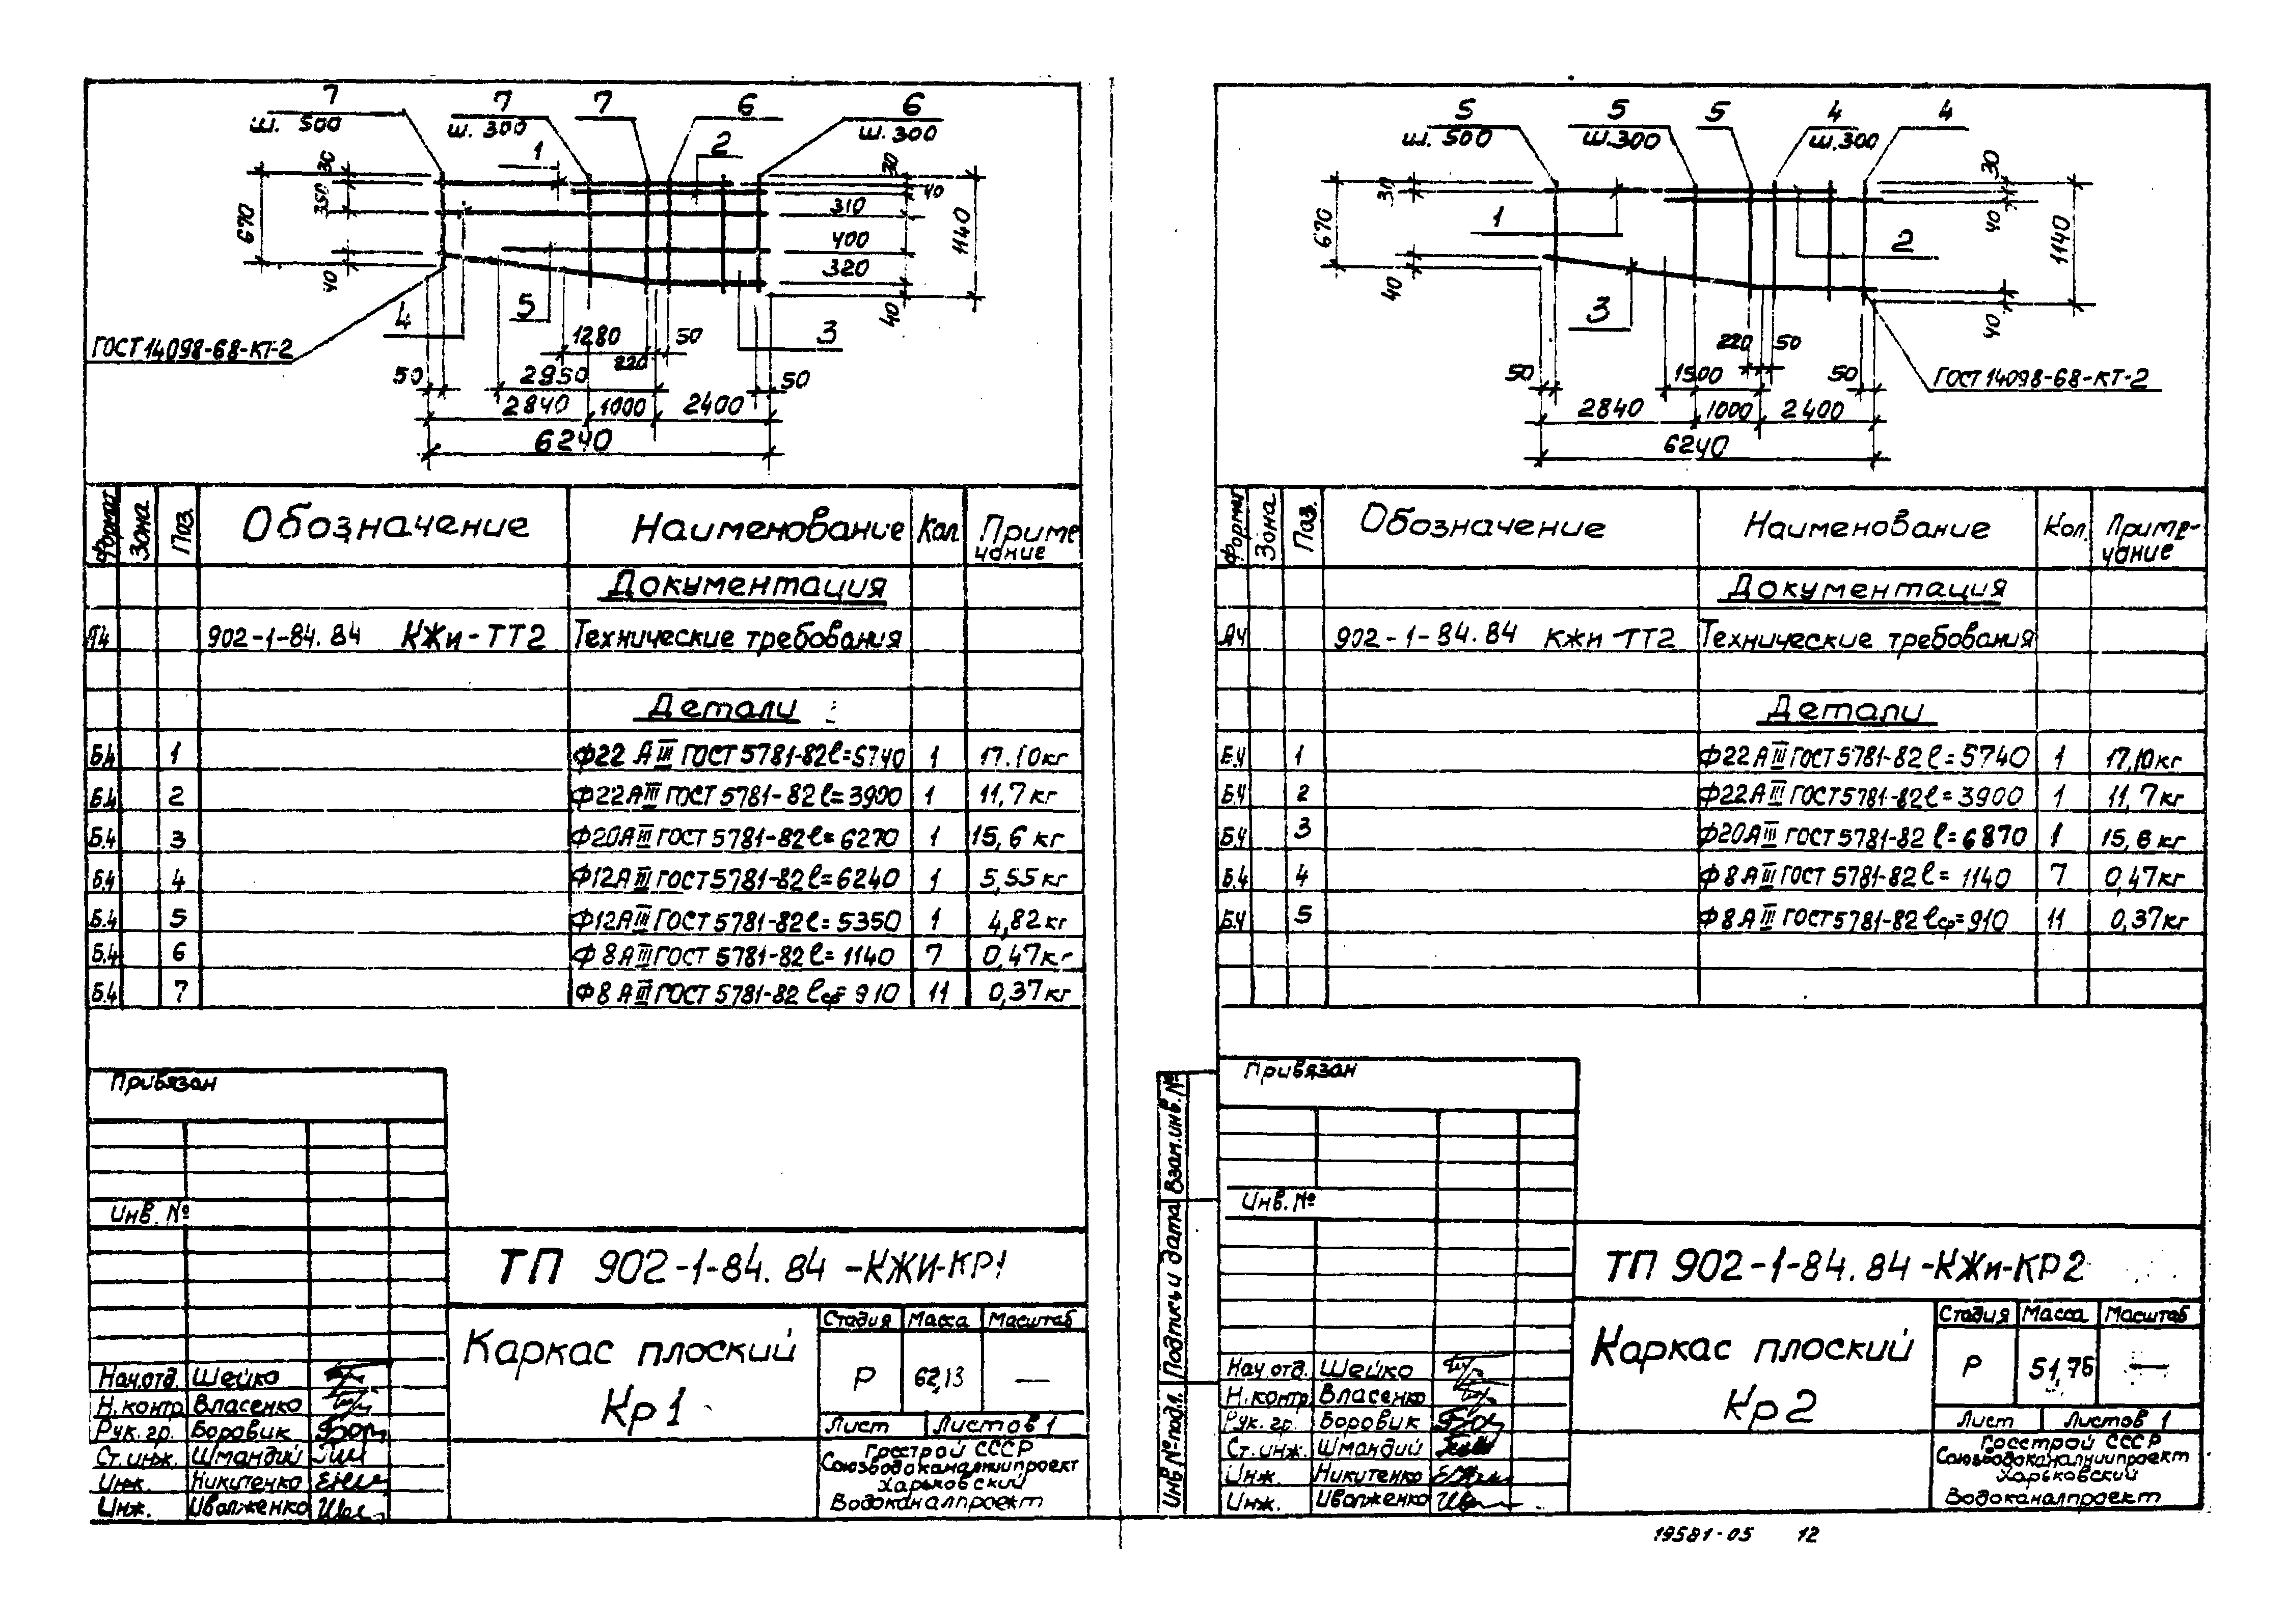 7 7 7 6 6
ш. 500 ш. 300 ш. 300
1 2
30 350 40 670
30 40 310 400 320 40 1140
4 5 3
ГОСТ 14098-68-КТ-2
1280 50
220
50 2950 50
2840 1000 2400
6240
Формат Зона Поз. Обозначение Наименование Кол. Приме
чание
Документация
А4 902-1-84.84 КЖи-ТТ2 Технические требования
Детали
Б.4 1 Ф22 АIII ГОСТ 5781-82 ℓ=5740 1 17.10кг
Б.4 2 Ф22АIII ГОСТ 5781-82 ℓ=3900 1 11,7кг
Б.4 3 Ф20АIII ГОСТ 5781-82 ℓ=6270 1 15,6 кг
Б.4 4 Ф12АIII ГОСТ 5781-82 ℓ=6240 1 5,55кг
Б.4 5 Ф12АIII ГОСТ 5781-82 ℓ=5350 1 4,82кг
Б.4 6 Ф 8АIII ГОСТ 5781-82 ℓ=1140 7 0,47кг
Б.4 7 Ф8 АIII ГОСТ 5781-82 ℓср=910 11 0,37кг
Привязан
Инв. №
ТП 902-1-84.84 -КЖИ-КР1
Каркас плоский
Кр1
Стадия Масса Масштаб
Р 62,13 —
Лист Листов 1
Госстрой СССР
Союзводоканалниипроект
Харьковский
Водоканалпроект
Нач.отд. Шейко
Н.контр. Власенко
Рук. гр. Боровик
Ст.инж. Шмандий
Инж. Никитенко
Инж. Иволженко
5 5 5 4 4
ш. 500 ш.300 ш.300
30 670 40
30 40 1140 40
1 2 3
220 50
50 1500 50
ГОСТ 14098-68-КТ-2
2840 1000 2400
6240
Формат Зона Поз. Обозначение Наименование Кол. Приме-
чание
Документация
А4 902-1-84.84 КЖи-ТТ2 Технические требования
Детали
Б.4 1 Ф22АIII ГОСТ 5781-82 ℓ=5740 1 17,10кг
Б.4 2 Ф22АIII ГОСТ 5781-82 ℓ=3900 1 11,7кг
Б.4 3 Ф20АIII ГОСТ 5781-82 ℓ=6870 1 15,6кг
Б.4 4 Ф 8АIII ГОСТ 5781-82 ℓ=1140 7 0,47кг
Б.4 5 Ф8АIII ГОСТ 5781-82 ℓср=910 11 0,37кг
Привязан
Инв. №
Взам.инв.№
Подпись и дата
Инв.№ подл.
ТП 902-1-84.84 -КЖи-КР2
Каркас плоский
Кр2
Стадия Масса Масштаб
Р 51,76 —
Лист Листов 1
Госстрой СССР
Союзводоканалниипроект
Харьковский
Водоканалпроект
Нач.отд. Шейко
Н.контр. Власенко
Рук. гр. Боровик
Ст.инж. Шмандий
Инж. Никитенко
Инж. Иволженко
19581-05 12